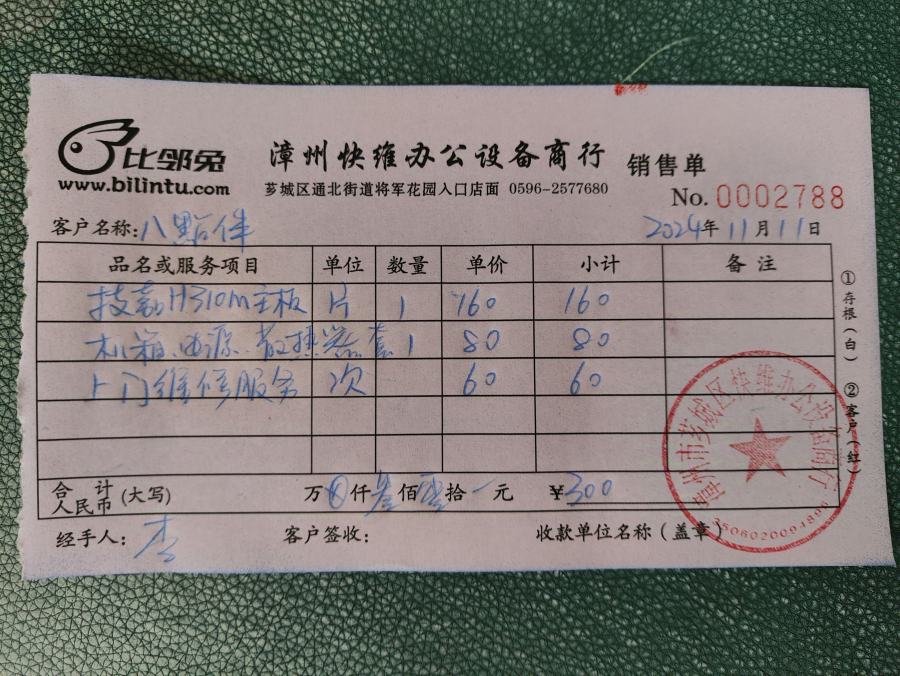 比邻兔
www.bilintu.com
漳州快维办公设备商行 销售单
芗城区通北街道将军花园入口店面 0596-2577680
No. 0002788
客户名称: 八點伴 2024年11月11日
品名或服务项目 单位 数量 单价 小计 备注
技嘉H310m主板 片 1 160 160
机箱、电源、散热器 套 1 80 80
上门维修服务 次 60 60
合计人民币(大写) 万 仟叁佰 拾 元 ¥300
经手人: 李 客户签收: 收款单位名称(盖章)
①存根(白) ②客户(红)
漳州市芗城区快维办公设备商行